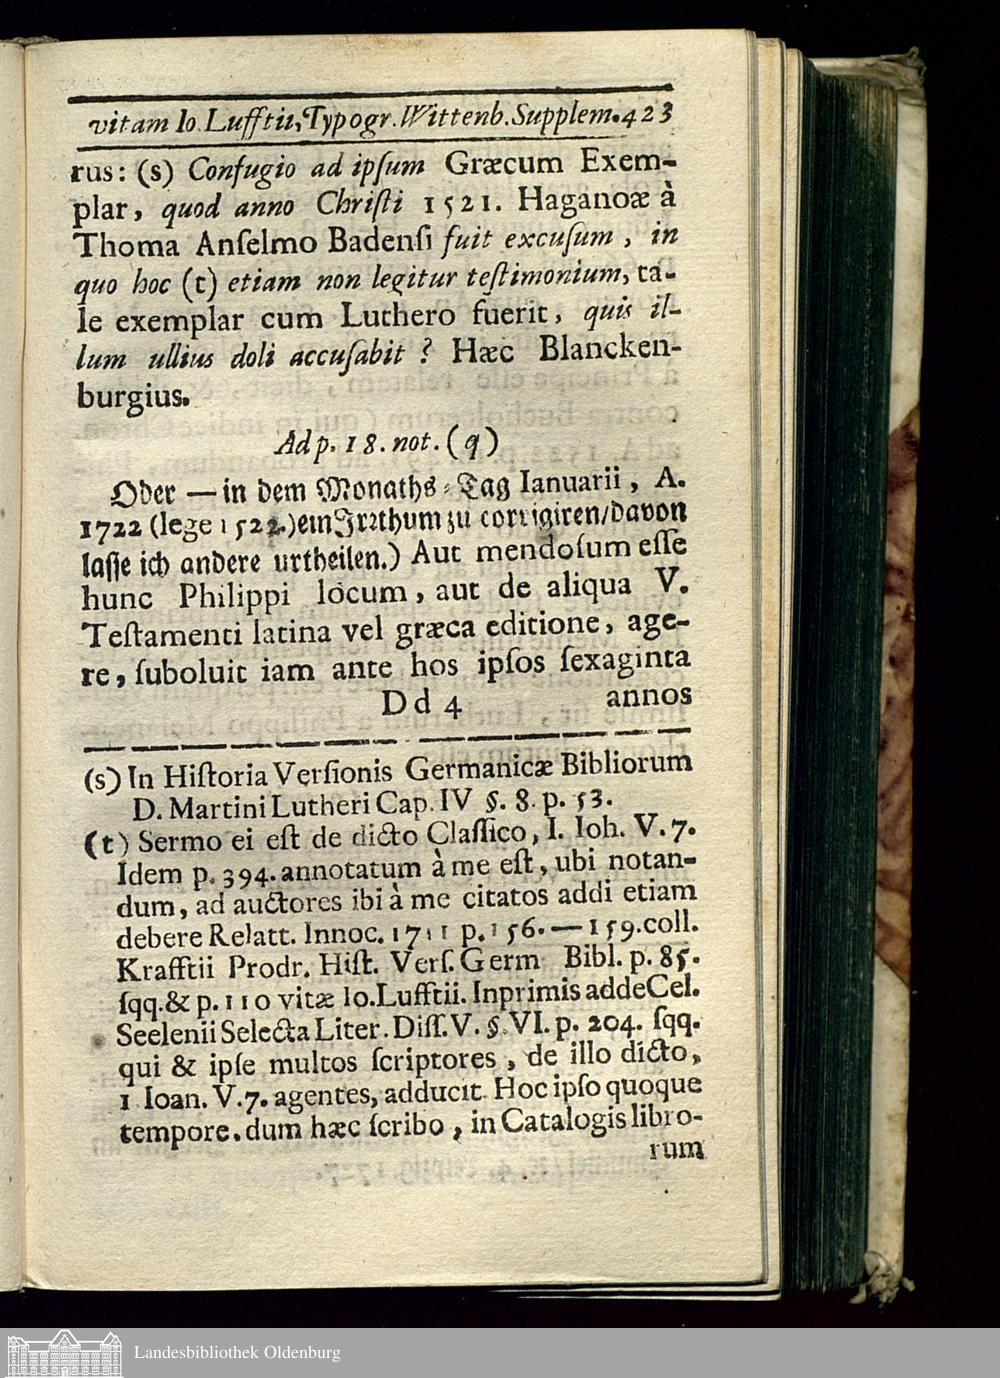 vitam Io. Lufftii, Typogr. Wittenb. Supplem. 423
rus: (s) Confugio ad ipſum Græcum Exem-
plar, quod anno Chriſti 1521. Haganoæ à
Thoma Anſelmo Badenſi fuit excuſum, in
quo hoc (t) etiam non legitur teſtimonium, ta-
le exemplar cum Luthero fuerit, quis il-
lum ullius doli accuſabit? Hæc Blancken-
burgius.
Ad p. 18. not. (q)
Oder — in dem Monaths-Tag Ianuarii, A.
1722 (lege 1522.) ein Irrthum zu corrigiren/davon
laſſe ich andere urtheilen.) Aut mendoſum eſſe
hunc Philippi locum, aut de aliqua V.
Teſtamenti latina vel græca editione, age-
re, ſuboluit iam ante hos ipſos ſexaginta
Dd 4 annos
(s) In Hiſtoria Verſionis Germanicæ Bibliorum
D. Martini Lutheri Cap. IV §. 8. p. 53.
(t) Sermo ei eſt de dicto Claſſico, I. Ioh. V. 7.
Idem p. 394. annotatum à me eſt, ubi notan-
dum, ad auctores ibi à me citatos addi etiam
debere Relatt. Innoc. 1711 p. 156. — 159. coll.
Krafftii Prodr. Hiſt. Verſ. Germ Bibl. p. 85.
ſqq. & p. 110 vitæ Io. Lufftii. Inprimis adde Cel.
Seelenii Selecta Liter. Diſſ. V. §. VI. p. 204. ſqq.
qui & ipſe multos ſcriptores, de illo dicto,
1 Ioan. V. 7. agentes, adducit. Hoc ipſo quoque
tempore, dum hæc ſcribo, in Catalogis libro-
rum
Landesbibliothek Oldenburg